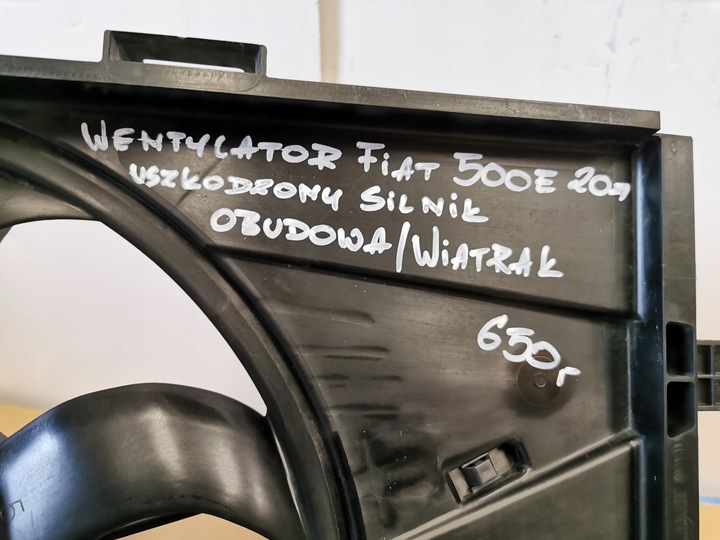 WENTYLATOR FiAT 500E 20r
USZKODZONY SILNIK
OBUDOWA/WiATRAK
650r